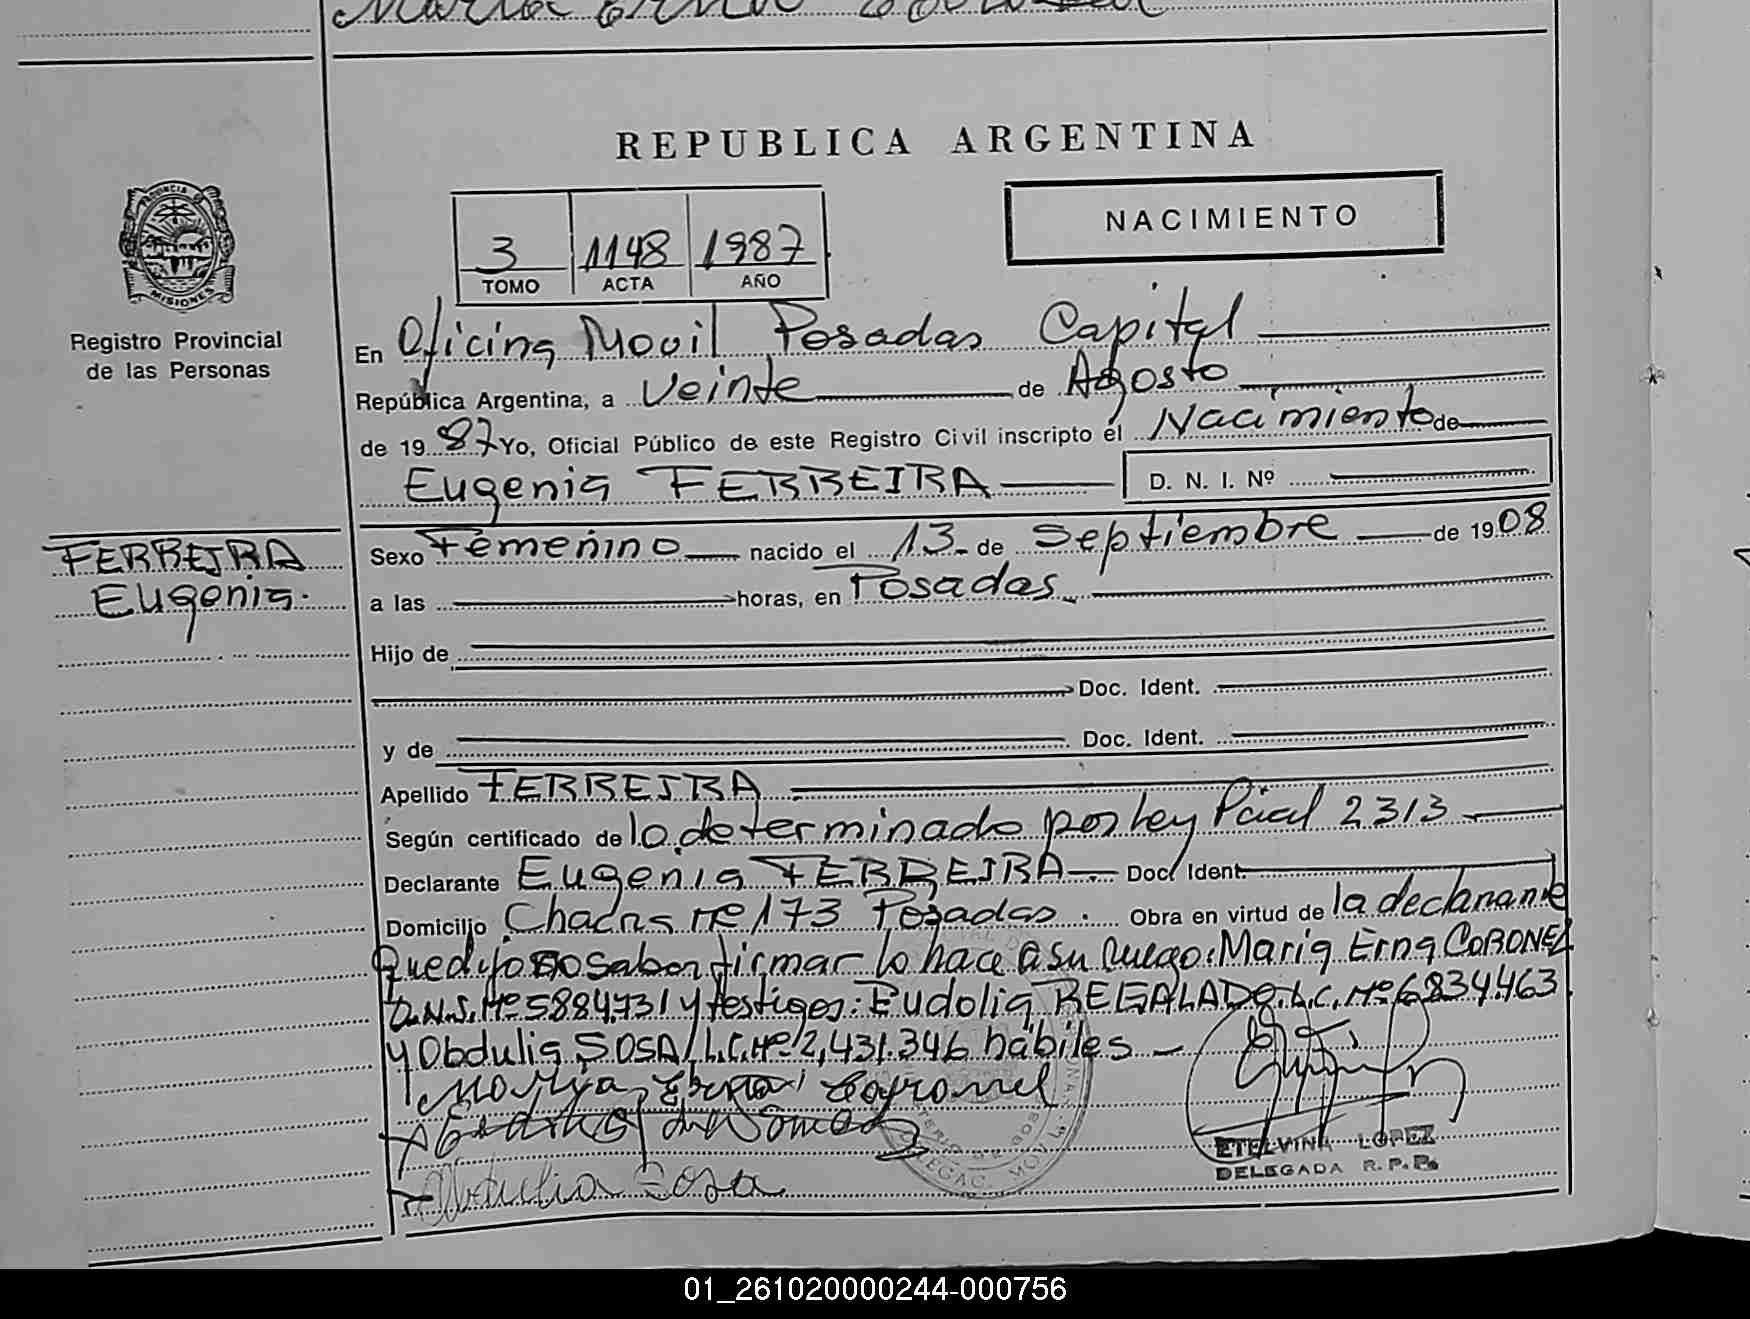 Maria Erna Coronel
REPUBLICA ARGENTINA
PROVINCIA DE
MISIONES
Registro Provincial
de las Personas
3 1148 1987
TOMO ACTA AÑO
NACIMIENTO
En Oficina Movil Posadas Capital
República Argentina, a veinte de Agosto
de 1987 Yo, Oficial Público de este Registro Civil inscripto el Nacimiento de
Eugenia FERREIRA D. N. I. Nº
FERREIRA
Eugenia.
Sexo Femenino nacido el 13 de Septiembre de 1908
a las horas, en Posadas
Hijo de
Doc. Ident.
y de Doc. Ident.
Apellido FERREIRA
Según certificado de lo determinado por Ley Pcial 2313
Declarante Eugenia FERREIRA Doc. Ident
Domicilio Chacra Nº 173 Posadas. Obra en virtud de la declarante
Que dijo no saber firmar lo hace a su ruego: Maria Erna CORONEL
D.N.I. Nº 5884.731 y testigos: Rudolia REGALADO L.C. Nº 6834.463
y Obdulia SOSA L.C. Nº 2,431.346 hábiles
Maria Erna Coronel
Obdulia Sosa
ETELVINA LOPEZ
DELEGADA R.P.P.
01_261020000244-000756